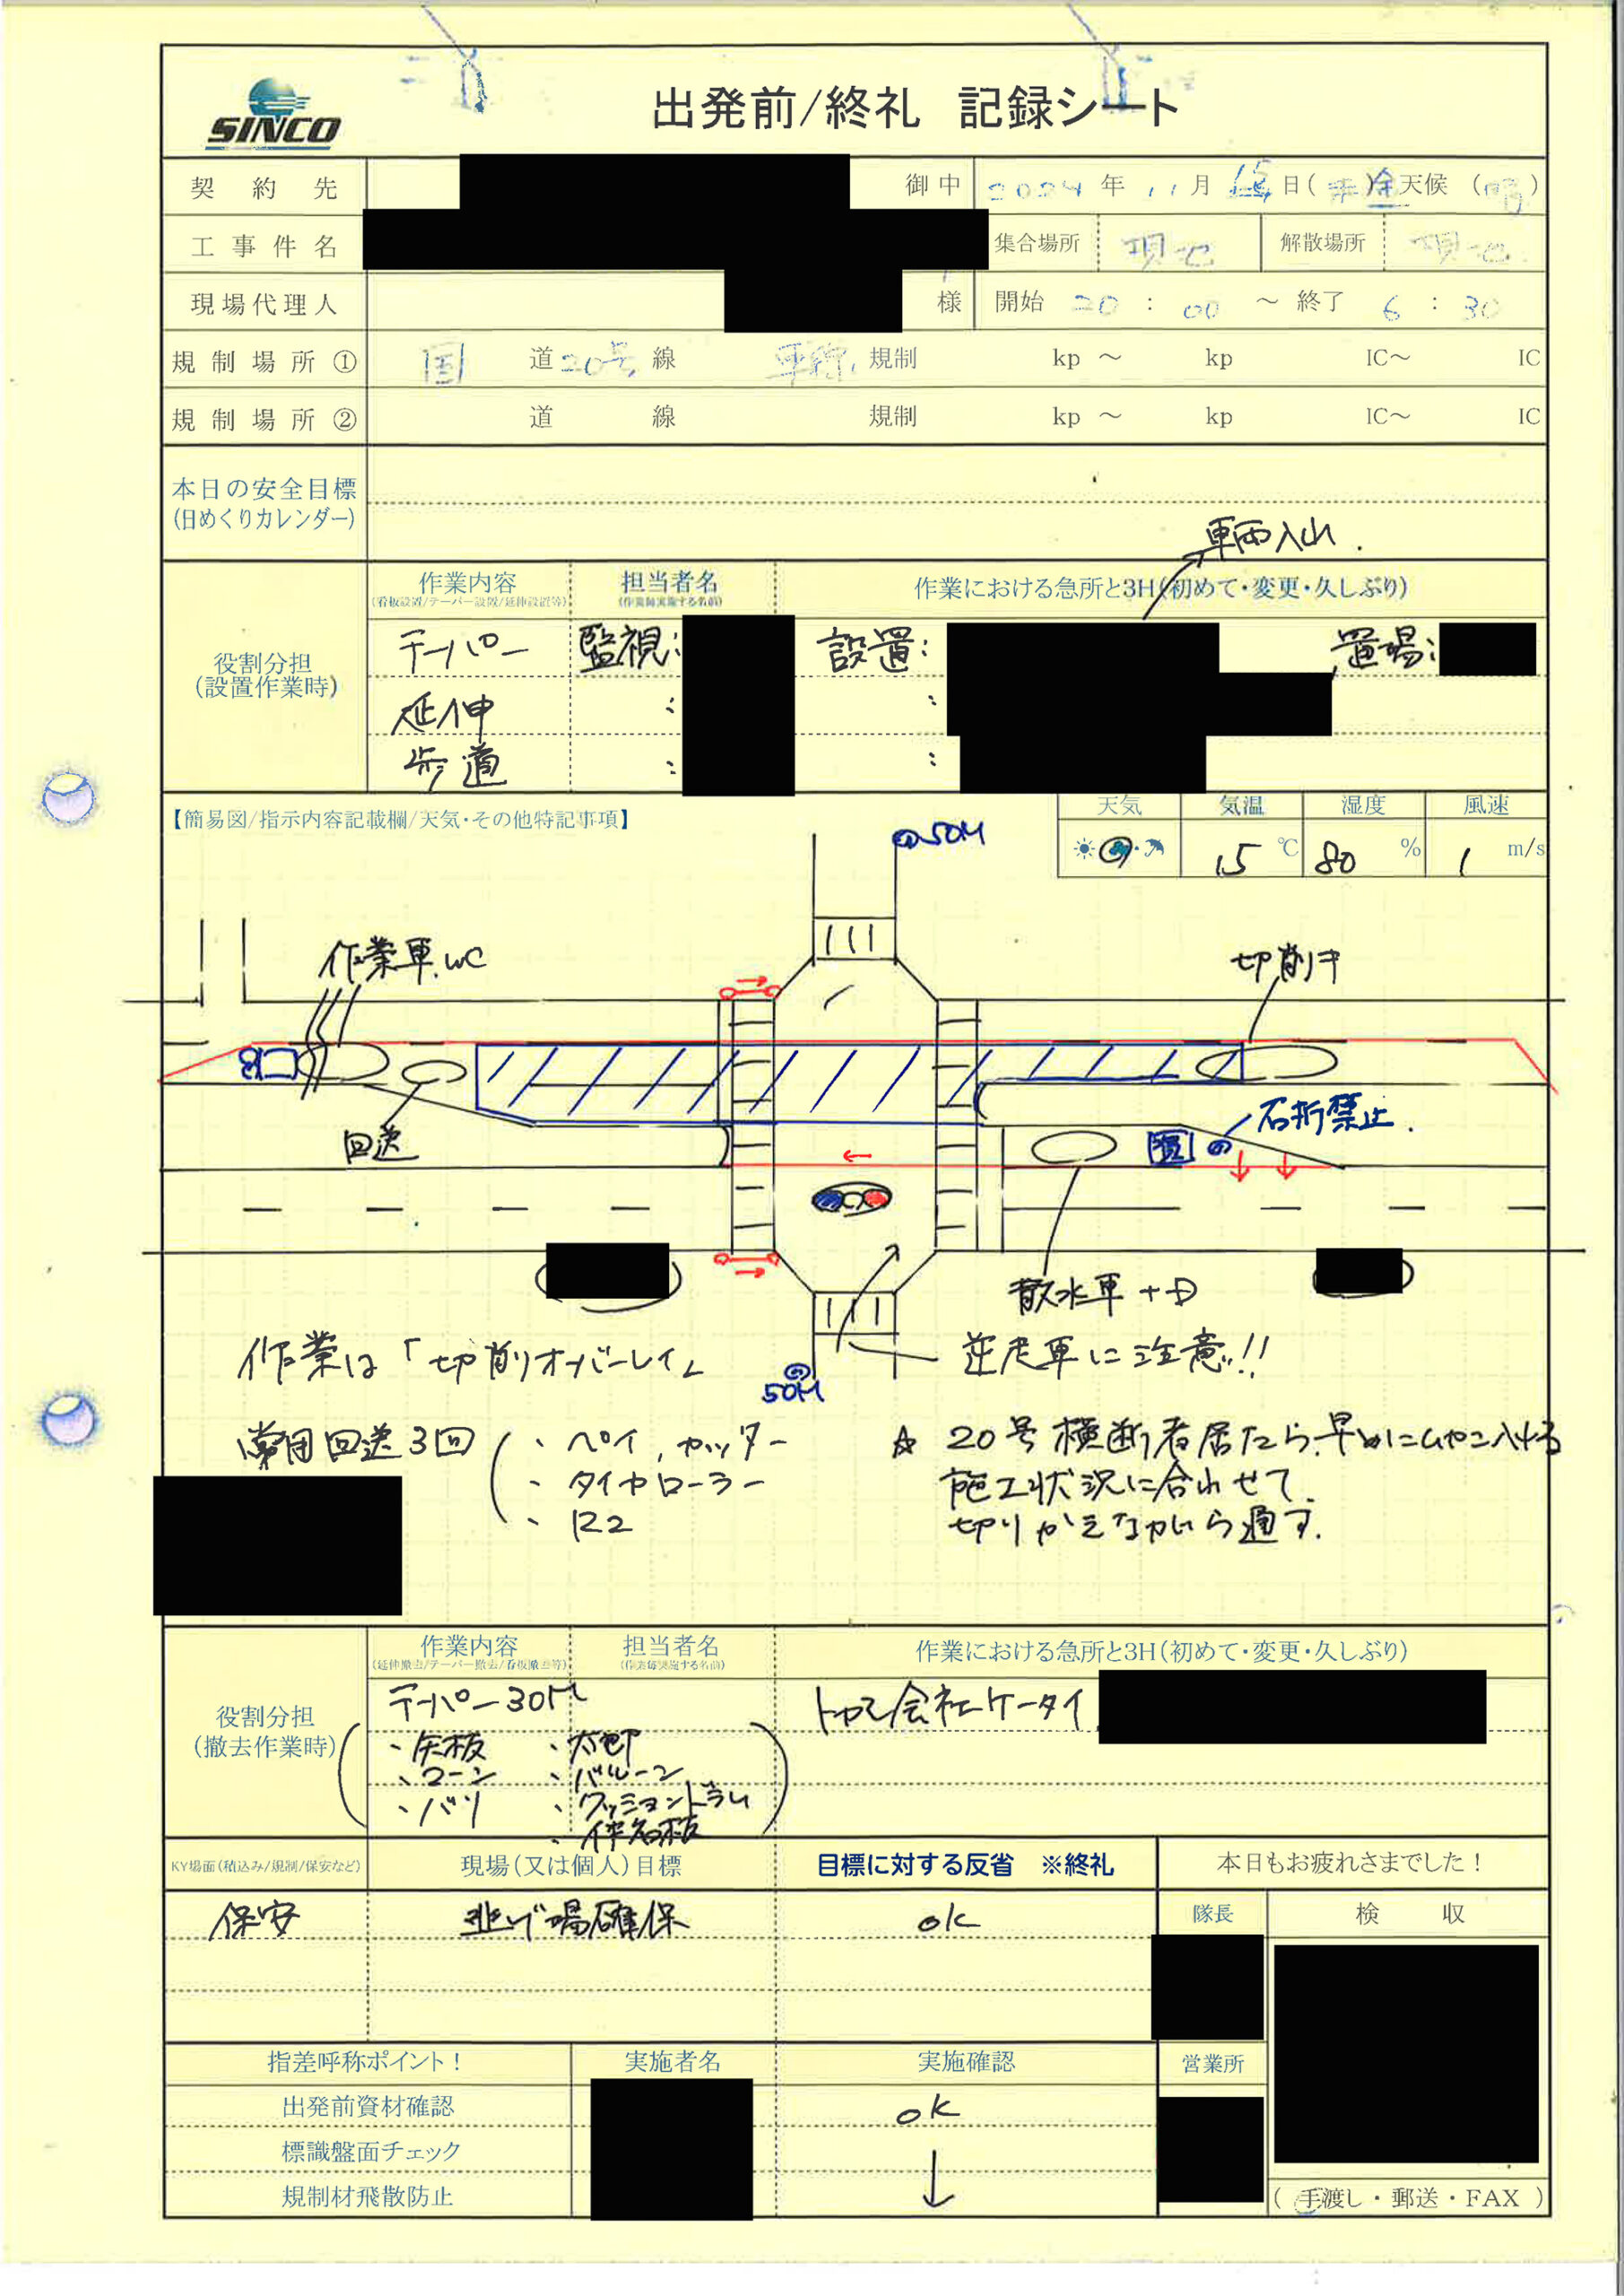 SINCO
出発前/終礼 記録シート
契約先 御中 2024年11月15日(金)天候(晴)
工事件名 集合場所 現地 解散場所 現地
現場代理人 様 開始 20:00 ~ 終了 6:30
規制場所① 国道20号線 車線規制 kp ~ kp IC~ IC
規制場所② 道 線 規制 kp ~ kp IC~ IC
本日の安全目標
(日めくりカレンダー)
車両入出.
作業内容 担当者名 作業における急所と3H(初めて・変更・久しぶり)
(看板設置/テーパー設置/延伸設置等) (作業毎実施する名前)
役割分担
(設置作業時)
テーパー 監視: 設置: 置場:
延伸 : :
歩道 : :
【簡易図/指示内容記載欄/天気・その他特記事項】
天気 気温 湿度 風速
15℃ 80% 1m/s
50M
作業車.WC
切削キ
回送
右折禁止.
散水車+D
50M
逆走車に注意!!
作業は「切削オーバーレイ」
回送3回
・ペイ,カッター
・タイヤローラー
・R2
☆ 20号横断者居たら、早めに入れる
施工状況に合わせて、
切りかえながら通す.
作業内容 担当者名 作業における急所と3H(初めて・変更・久しぶり)
(延伸撤去/テーパー撤去/看板撤去等) (作業毎実施する名前)
役割分担
(撤去作業時)
テーパー30M
会社ケータイ
・矢板 ・太郎
・コーン ・バルーン
・バリ ・クッションドラム
KY場面(積込み/規制/保安など) 現場(又は個人)目標 目標に対する反省 ※終礼 本日もお疲れさまでした!
保安 逃げ場確保 ok
隊長 検収
指差呼称ポイント! 実施者名 実施確認 営業所
出発前資材確認 ok
標識盤面チェック ↓
規制材飛散防止
(手渡し・郵送・FAX)